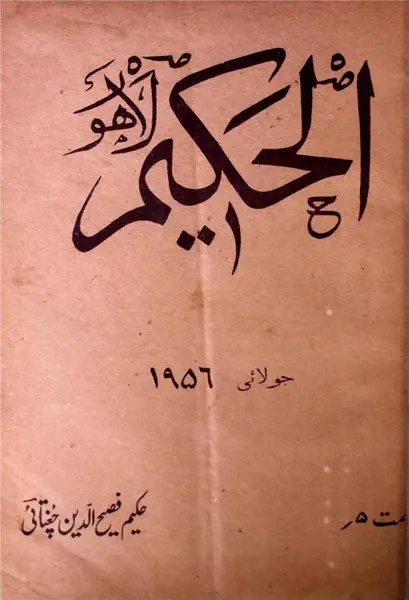 الحکیم لاہور
جولائی ۱۹۵۶
حکیم فصیح الدین چغتائی